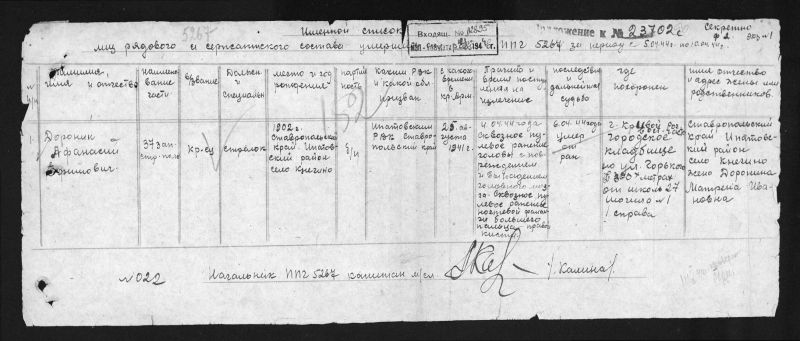 5267
Именной список
Входящ. №
Приложение к № 23702с
Секретно
лиц рядового и сержантского состава умерш
ППГ 5267 за период с 5.04.44г. по 10.04.44г.
Фамилия, имя и отчество
Наименование части
Звание
Должн и специальн
место и год рождения
партийность
каким РВК и какой обл призван
с какого времени в кр. Арм.
последствия дальнейшая судьба
где похоронен
имя отчество и адрес жены или родственников.
Доронин
Афанасий
37 зап.
стр. полк
кр-ец
стрелок
1902г.
Ставропольский
край Ипатовский
район
село Кнегино
б/п
Ипатовским
РВК Ставропольский край
1941г.
4.04.44года
Сквозное пулевое ранение
головы с повреждением
головного мозга. Сквозное пулевое ранение
ногтевой фаланги большего
пальца правой
кисти
6.04.44года
умер
от
ран
городское
кладбище
по ул. Горького
метрах
от школы 27
могила №1
справа
Ставропольский
край Ипатовский
район
село Кнегино
жена Доронина
Матрена Ивановна
№022
Начальник ППГ 5267 капитан м/сл.
/Калина/